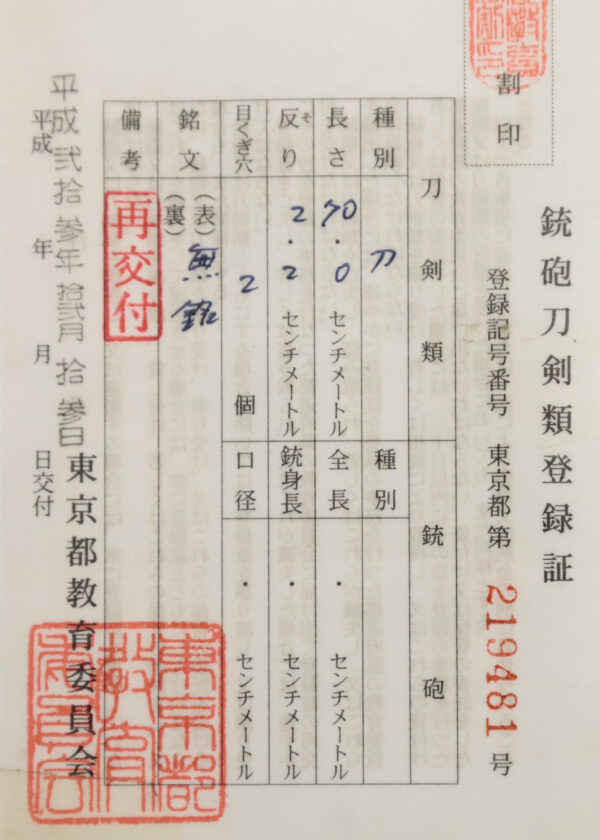 割印
銃砲刀剣類登録証
登録記号番号 東京都第 219481 号
刀剣類
銃砲
種別 刀
種別
長さ 70・0 センチメートル
全長 ・ センチメートル
反り 2・2 センチメートル
そ
銃身長 ・ センチメートル
目くぎ穴 2 個
口径 ・ センチメートル
銘文 (表) 無銘
(裏)
備考 再交付
平成弐拾参年拾弐月拾参日
平成 年 月 日交付
東京都教育委員会
東京都
教育
委員会